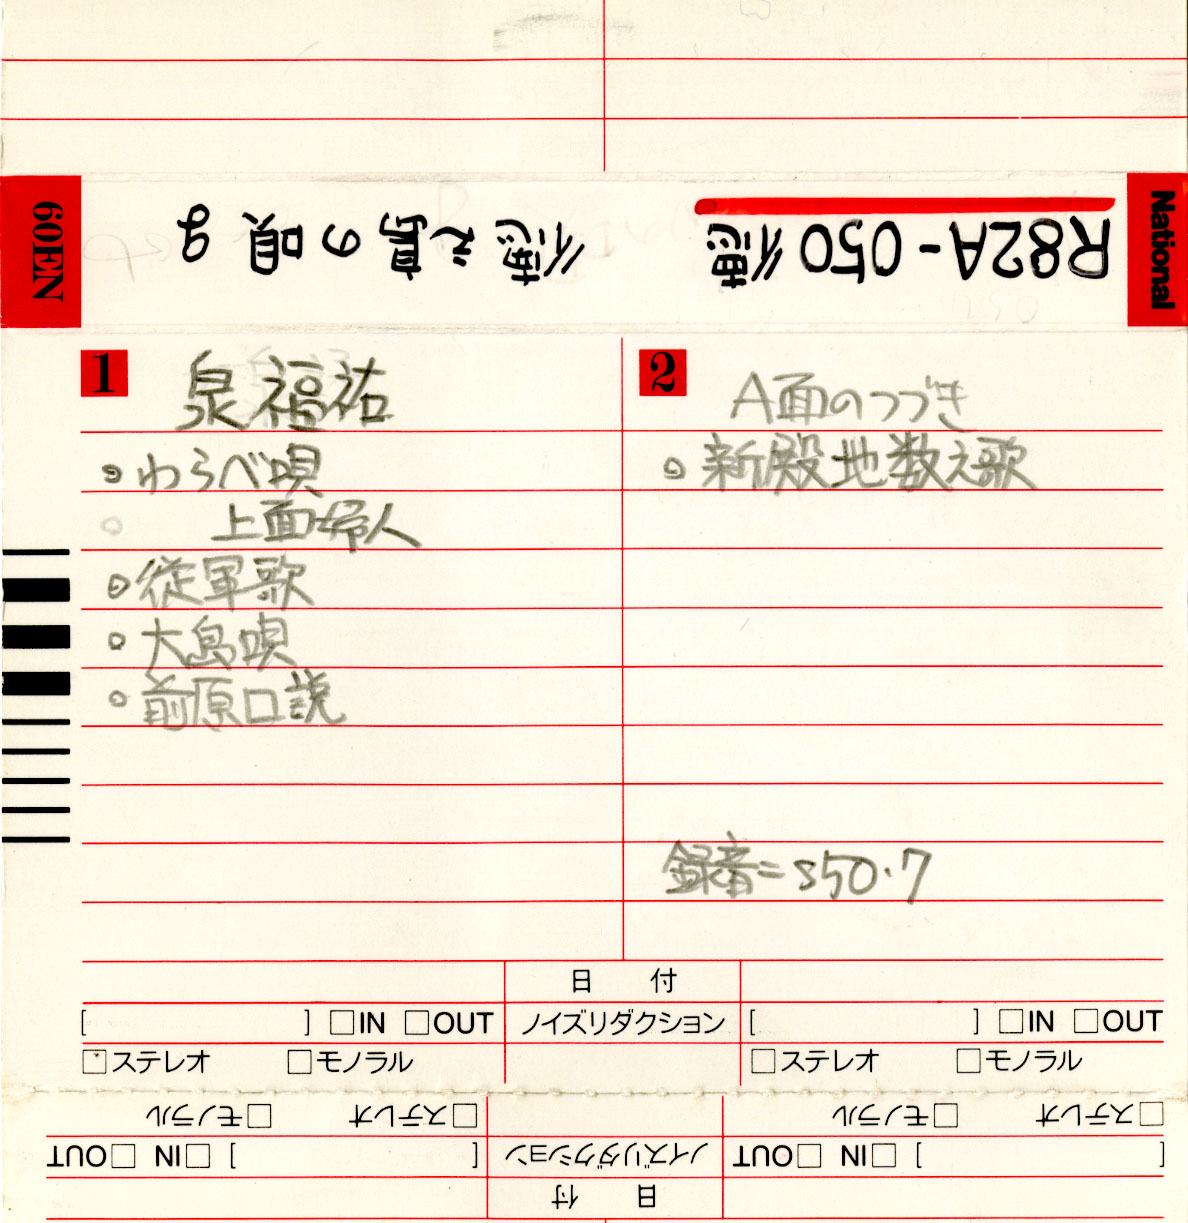 National
R82A-050徳 徳之島の唄 9
NEI09
1
泉福祐
わらべ唄
上面婦人
従軍歌
大島唄
前原口説
2
A面のつづき
新殿地数え歌
録音=S50.7
日 付
[ ] □IN □OUT ノイズリダクション [ ] □IN □OUT
□ステレオ □モノラル □ステレオ □モノラル
日 付
[ ] □IN □OUT ノイズリダクション [ ] □IN □OUT
□ステレオ □モノラル □ステレオ □モノラル